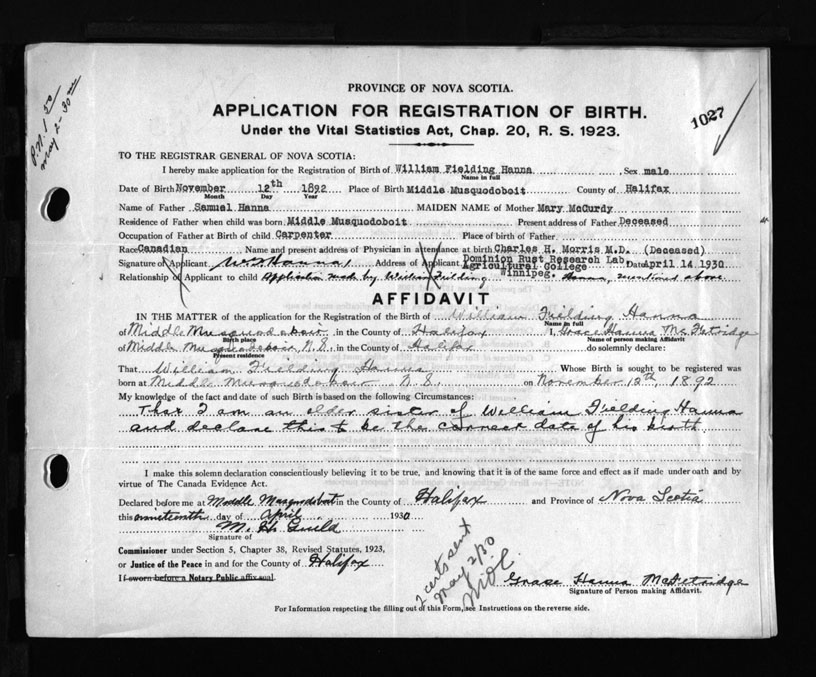 P.N. 1 50
May 2-30
1027
PROVINCE OF NOVA SCOTIA.
APPLICATION FOR REGISTRATION OF BIRTH.
Under the Vital Statistics Act, Chap. 20, R. S. 1923.
TO THE REGISTRAR GENERAL OF NOVA SCOTIA:
I hereby make application for the Registration of Birth of William Fielding Hanna Sex male
Name in full
Date of Birth November 12th 1892 Place of Birth Middle Musquodoboit County of Halifax
Month Day Year
Name of Father Samuel Hanna MAIDEN NAME of Mother Mary McCurdy
Residence of Father when child was born Middle Musquodoboit Present address of Father Deceased
Occupation of Father at Birth of child Carpenter Place of birth of Father
Race Canadian Name and present address of Physician in attendance at birth Charles H. Morris M.D. (Deceased)
Signature of Applicant W. F. Hanna Address of Applicant Dominion Rust Research Lab. Agricultural College Winnipeg. Date April 14 1930
Relationship of Applicant to child Application made by William Fielding Hanna, mentioned above
AFFIDAVIT
IN THE MATTER of the application for the Registration of the Birth of William Fielding Hanna
Name in full
of Middle Musquodoboit in the County of Halifax I, Grace Hanna McFetridge
Birth place Name of person making Affidavit
of Middle Musquodoboit, N.S. in the County of Halifax do solemnly declare:
Present residence
That William Fielding Hanna Whose Birth is sought to be registered was
born at Middle Musquodoboit N.S. on November 12th, 1892
My knowledge of the fact and date of such Birth is based on the following Circumstances:
That I am an older sister of William Fielding Hanna
and declare this to be the correct date of his birth.
I make this solemn declaration conscientiously believing it to be true, and knowing that it is of the same force and effect as if made under oath and by
virtue of The Canada Evidence Act.
Declared before me at Middle Musquodoboit in the County of Halifax and Province of Nova Scotia
this nineteenth day of April 1930
M. H. Guild
Signature of
Commissioner under Section 5, Chapter 38, Revised Statutes, 1923,
or Justice of the Peace in and for the County of Halifax
If sworn before a Notary Public affix seal.
2 certs sent
May 2/30
Grace Hanna McFetridge
Signature of Person making Affidavit.
For Information respecting the filling out of this Form, see Instructions on the reverse side.